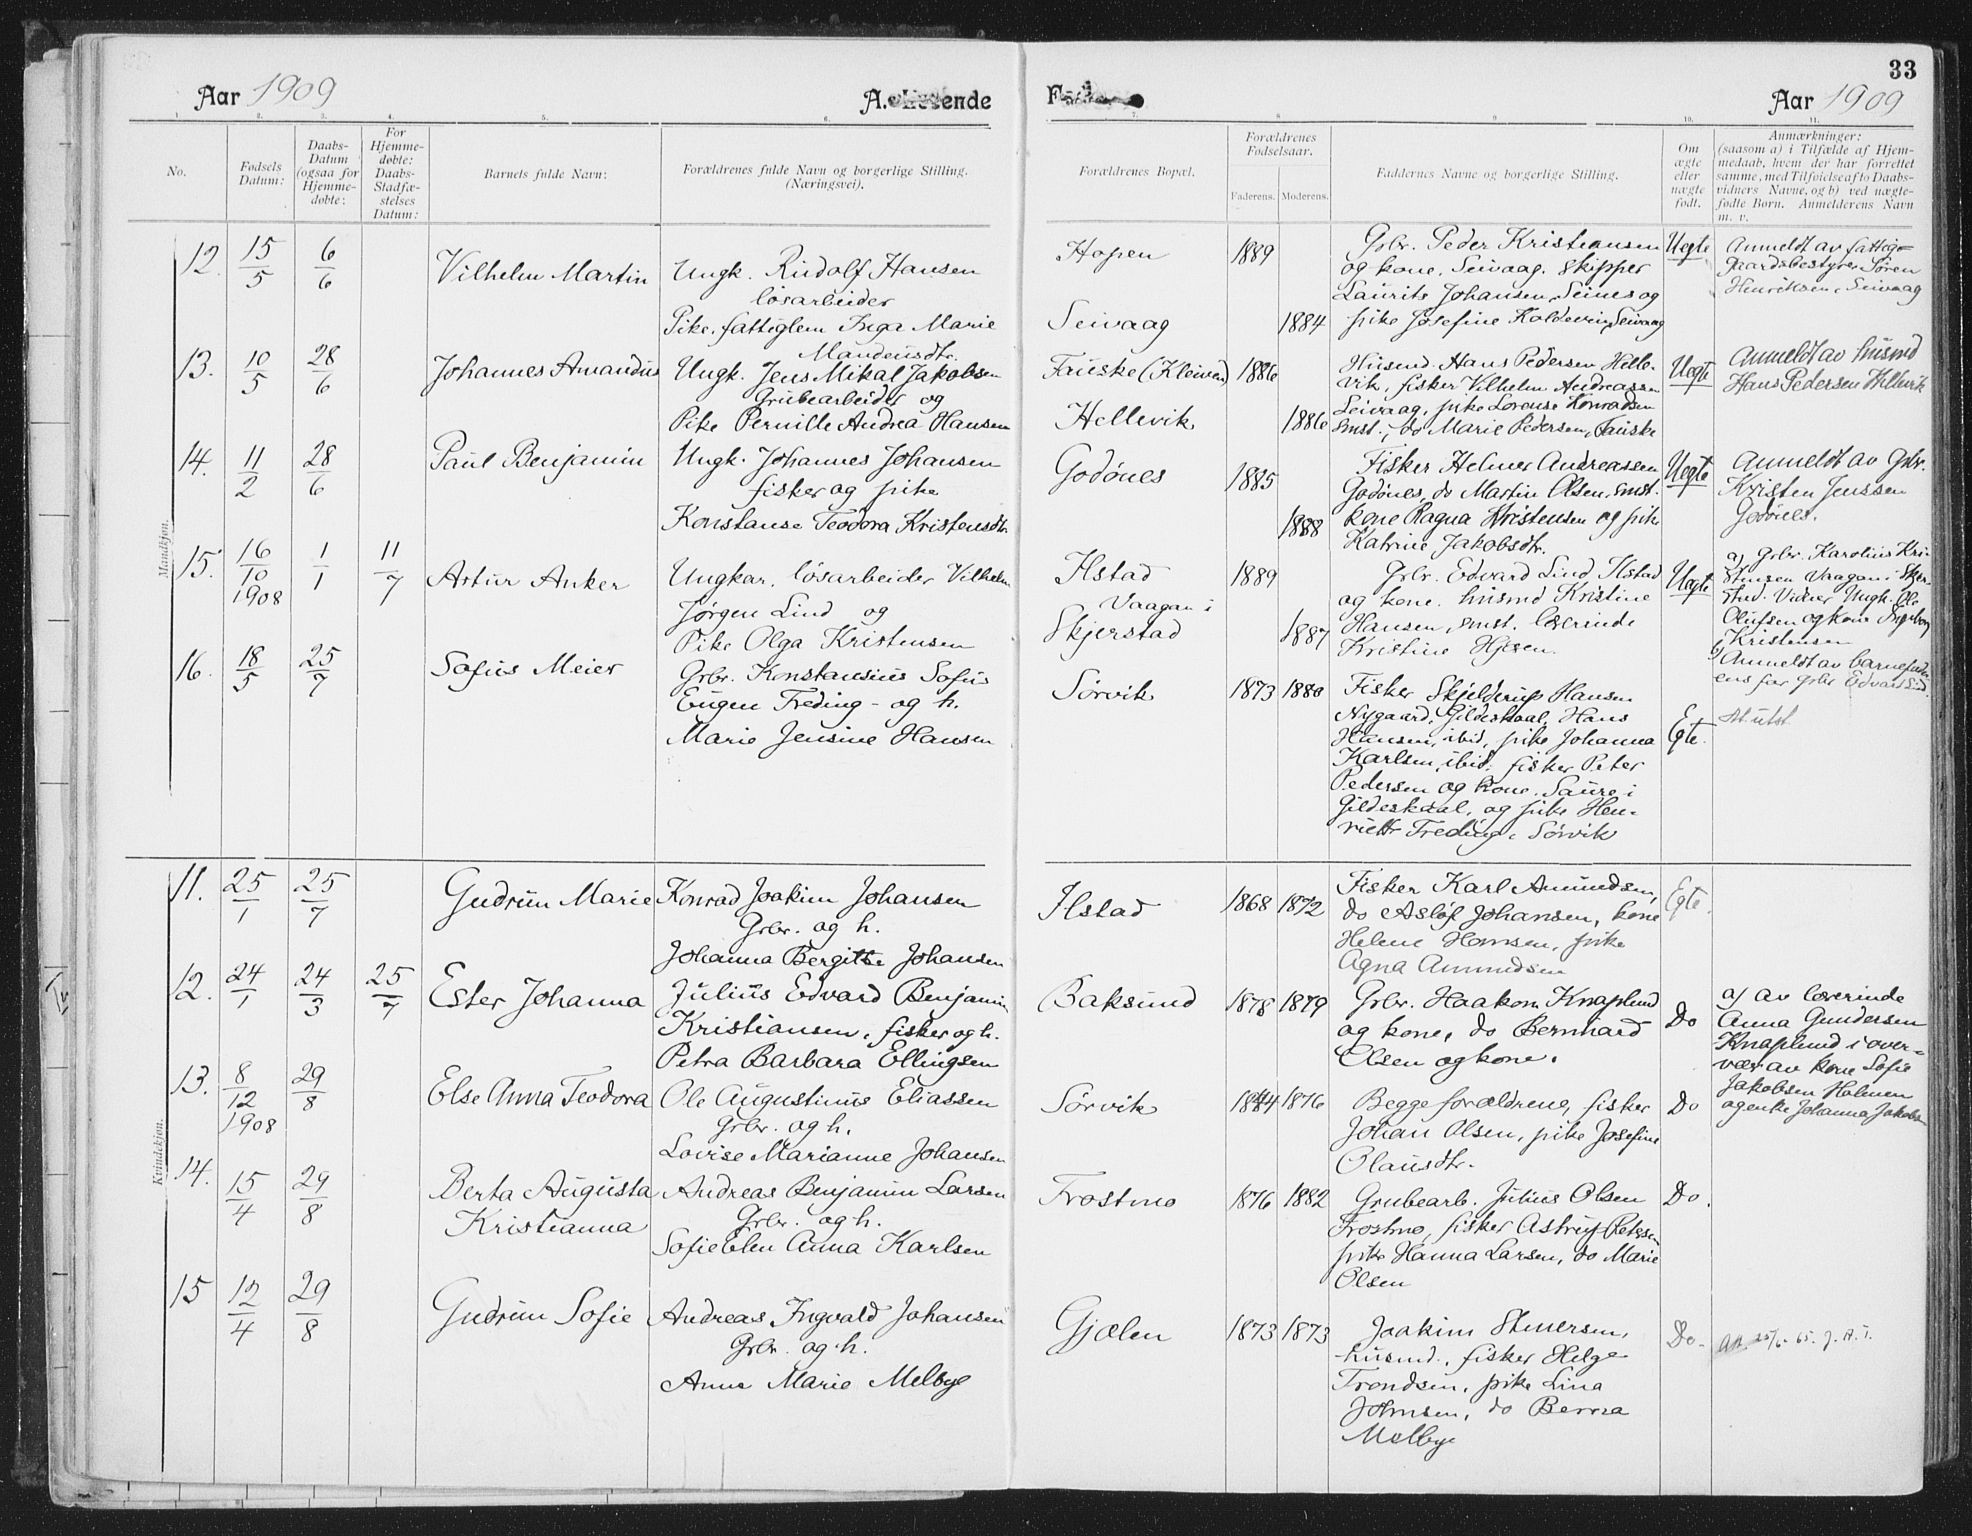 33
Aar 1909
Aar 1909
1. 2. 3. 4. 5. 6. 7. 8. 9. 10. 11.
No.
Fødsels Datum:
Daabs-Datum (ogsaa for Hjemme-døbte:
For Hjemme-døbte: Daabs-Stadfæ-stelses Datum:
Barnets fulde Navn:
Forældrenes fulde Navn og borgerlige Stilling. (Næringsvei).
Forældrenes Bopæl.
Forældrenes Fødselsaar.
Faderens. Moderens.
Faddernes Navne og borgerlige Stilling.
Om ægte eller uægte født.
Anmærkninger:
(saasom a) i Tilfælde af Hjem-
medaab, hvem der har forrettet
samme, med Tilføielse af to Daabs-
vidners Navne, og b) ved uægte-
fødte Børn. Anmelderens Navn
m. v.
Mandkjøn.
12. 15/5 6/6
Vilhelm Martin
Ungk. Rudolf Hansen
løsarbeider
Pike, fattiglem Inga Marie
Mandeusdtr.
Hopen
Seivaag
1889
1884
Grbr. Peder Kristiansen
og kone, Seivaag. Skipper
Laurits Johansen, Seines og
pike Josefine Seivaag
Uegte
Anmeldt av fattig-
gaardsbestyrer Søren
Henriksen, Seivaag
13. 10/5 28/6
Johannes Amandus
Ungk. Jens Mikal Jakobsen
Grubearbeider og
Pike Pernille Andrea Hansen
Fauske (Kleiven)
Hellevik
1886
1886
Husmd. Hans Pedersen Helle-
vik, fisker Vilhelm Andreassen
Seivaag, pike Lorense Konradsen
smst., do Marie Pedersen, Fauske
Uegte
Anmeldt av husmd
Hans Pedersen Hellevik
14. 11/2 28/6
Paul Benjamin
Ungk. Johannes Johansen
fisker og pike
Konstanse Teodora Kristensdtr.
Godønes
1885
1888
Fisker Helmer Andreassen
Godønes, do Martin Olsen, smst.
kone Ragna Kristensen og pike
Katrine Jakobsdtr.
Uegte
Anmeldt av Grbr.
Kristen Jenssen
Godønes.
15. 16/10 1908 1/1 11/7
Artur Anker
Ungkar, løsarbeider Vilhelm
Jørgen Lind og
Pike Olga Kristensen
Ilstad
Vaagan i
Skjerstad
1889
1887
Grbr. Edvard Lind Ilstad
og kone. husmd Kristine
Hansen, smst. lærerinde
Kristine Hjesen.
Uegte
a) Grbr. Karolius Kri-
stensen Vaagan i Skjer-
stad. Vidner Ungk. Ole
Olufsen og kone Ingeborg
Kristensen
b) Anmeldt av barnefad-
ens far grbr Edvard Lind
16. 18/5 25/7
Sofus Meier
Grbr. Konstansius Sofus
Eugen Freding - og h.
Marie Jensine Hansen
Sørvik
1873 1880
Fisker Skjelderup Hansen
Nygaard, Gildeskaal, Hans
Hansen, ibid, pike Johanna
Karlsen, ibid; fisker Peter
Pedersen og kone. Saure i
Gildeskaal, og pike Hen-
riette Freding, Sørvik
Egte.
At utst.
Kvindekjøn.
11. 25/1 25/7
Gudrun Marie
Konrad Joakim Johansen
Grbr. og h.
Johanna Bergitte Johansen
Ilstad
1868 1872
Fisker Karl Amundsen,
do Asløf Johansen, kone
Helene Hansen, pike
Agna Amundsen
Egte.
12. 24/1 24/3 25/7
Ester Johanna
Julius Edvard Benjamin
Kristiansen, fisker og h.
Petra Barbara Ellingsen
Baksund
1878 1879
Grbr. Haakon Knaplund
og kone, do Bernhard
Olsen og kone.
Do
a) av lærerinde
Anna Gundersen
Knaplund i over-
vær av kone Sofie
Jakobsen Holmen
og enke Johanna Jakobsen
13. 8/12 1908 29/8
Else Anna Teodora
Ole Augustinus Eliassen
Grbr. og h.
Lovise Marianne Johansen
Sørvik
1844 1876
Begge forældrene, fisker
Johan Olsen, pike Josefine
Olausdtr.
Do
14. 15/4 29/8
Berta Augusta
Kristianna
Andreas Benjamin Larsen
Grbr. og h.
Sofie Elen Anna Karlsen
Frostmo
1876 1882
Grubearb. Julius Olsen
Frostmo, fisker Astrup Petersen
pike Hanna Larsen, do Marie
Olsen
Do.
15 12/4 29/8
Gudrun Sofie
Andreas Ingvald Johansen
Grbr. og h.
Anna Marie Melbye
Gjælen
1873 1873
Joakim Stenersen,
husmd., fisker Helge
Trondsen, pike Lina
Johnsen, do Berna
Melbye
Do.